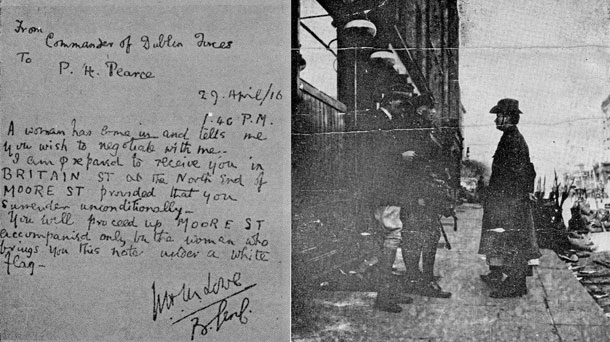 From
Commander of Dublin Forces
To
P. H. Pearce
29. April/16
1.40 P.M.
A woman has come in and tells me
you wish to negotiate with me.
I am prepared to receive you in
BRITAIN ST at the North End of
MOORE ST provided that you
surrender unconditionally_
You will proceed up MOORE ST
accompanied only by the woman who
brings you this note under a white
flag_
Lowe
B. Genl.